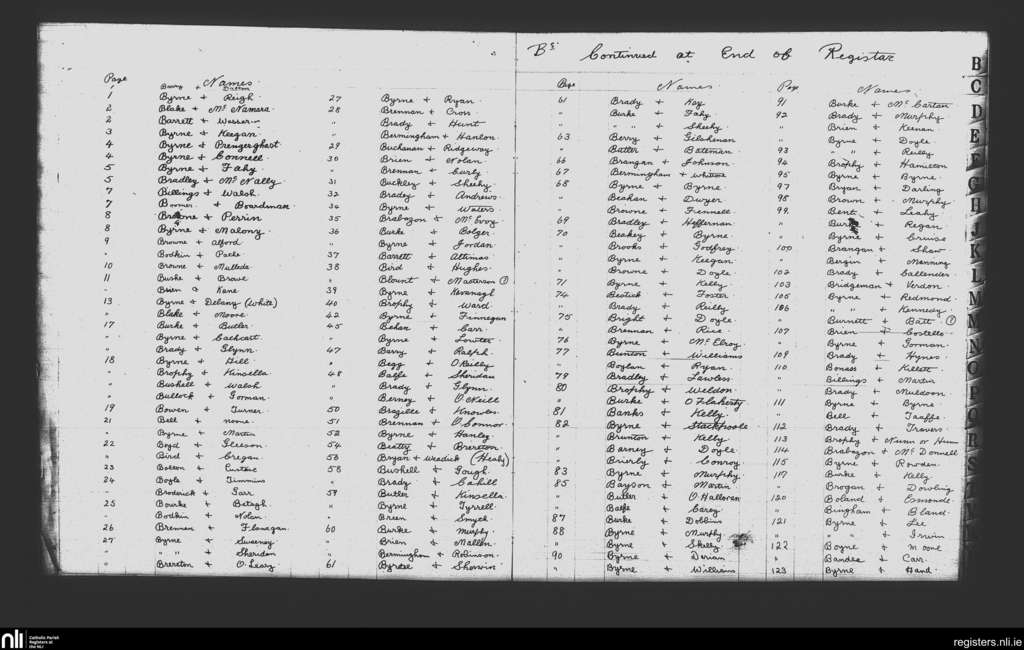 Bs. Continued at End of Register
Page Names
Barry + Dalton
1 Byrne + Reigh
2 Blake + Mc Namara
2 Barrett + Wesser
3 Byrne + Keegan
4 Byrne + Prengerghast
4 Byrne + Connell
5 Byrne + Fahy
5 Bradley + Mc Nally
7 Billings + Walsh
7 Boomer + Boardman
8 Browne + Perrin
8 Byrne + Malony
9 Browne + Alford
" Bodkin + Parke
10 Browne + Mullede
11 Burke + Browe
" Brien + Kane
13 Byrne + Delany (White)
" Blake + Moore
17 Burke + Butler
" Byrne + Cathcart
" Brady + Glynn
18 Byrne + Gill
" Brophy + Kinsella
" Bushell + Walsh
" Bullock + Gorman
19 Bowen + Turner
21 Bell + none
" Byrne + Martin
22 Boyd + Gleeson
" Bird + Cregan
23 Bolton + Eustace
24 Boyle + Timmins
" Broderick + Carr
25 Bourke + Betagh
" Bodkin + Nolan
26 Brennan + Flanagan
27 Byrne + Sweeney
" " " + Sheridan
" Brereton + O'Leary
27 Byrne + Ryan
28 Brennan + Cross
" Brady + Hunt
" Bermingham + Hanlon
29 Buchanan + Ridgeway
30 Brien + Nolan
" Brennan + Curly
31 Buckley + Sheehy
32 Bradey + Andrews
34 Byrne + Waters
35 Brabazon + Mc Evoy
36 Burke + Bolger
" Byrne + Jordan
37 Barrett + Attimas
38 Bird + Hughes
" Blount + Masterson (1)
39 Byrne + Kavanagh
40 Brophy + Ward
42 Byrne + Finnegan
45 Behan + Carr
" Byrne + Lowter
47 Barry + Ralph
" Begg + O'Reilly
48 Balfe + Sheridan
" Brady + Glynn
" Berney + O'Neill
50 Brazille + Knowles
51 Brennan + O'Connor
52 Byrne + Hanley
54 Beatty + Brereton
56 Bryan + Weadick (Healy)
58 Bushell + Gough
" Brady + Cahill
59 Butler + Kinsella
" Byrne + Tyrrell
" Breen + Smyth
60 Burke + Murphy
" Brien + Mallon
" Bermingham + Robinson
61 Byrne + Sherwin
Page Names
61 Brady + Kay
" Burke + Fahy
" " " + Sheehy
63 Berry + Gilshenan
" Butler + Bateman
66 Brangan + Johnson
67 Bermingham + White
68 Byrne + Byrne
" Beahan + Dwyer
" Browne + Fennell
69 Bradley + Heffernan
70 Beakey + Byrne
" Brooks + Godfrey
" Byrne + Keegan
" Browne + Doyle
71 Byrne + Kelly
74 Bestick + Foster
" Brady + Reilly
75 Bright + Doyle
" Brennan + Rice
76 Byrne + Mc Elroy
77 Bunton + Williams
" Boylan + Ryan
79 Bradley + Lawless
80 Brophy + Weldon
" Burke + O'Flaherty
81 Banks + Kelly
82 Byrne + Stackpoole
" Brunton + Kelly
" Barney + Doyle
" Brierly + Conroy
83 Byrne + Murphy
85 Bayson + Martin
" Butler + O'Halloran
" Balfe + Carey
87 Burke + Dobbins
88 Byrne + Murphy
" Byrne + Skelly
90 Byrne + Dirian
" Byrne + Williams
Page Names
91 Burke + Mc Cartan
92 Brady + Murphy
" Brien + Keenan
" Byrne + Doyle
93 " " + Reilly
94 Brophy + Hamilton
95 Byrne + Byrne
97 Bryan + Darling
98 Brown + Murphy
99 Bent + Leahy
" Burke + Regan
" Byrne +
100 Brangan + Shaw
" Bergin + Manning
102 Brady + Callender
103 Bridgeman + Verdon
105 Byrne + Redmond
106 " " + Kennedy
" Burnett + Batt (1)
107 Brien + Costello
" Byrne + Gorman
109 Brady + Hynes
110 Bonass + Killett
" Billings + Martin
" Brady + Muldoon
111 Byrne + Byrne
" Bell + Taaffe
112 Brady + Travers
113 Brophy + Nunn or Hunn
114 Brabazon + Mc Donnell
115 Byrne + Rowden
117 Burke + Kelly
" Brogan + Dowling
120 Boland + Esmonde
" Bingham + Bland
121 Byrne + Lee
" " " + Irwin
122 Boyne +
" Bandea + Carr
123 Byrne + Hand
B
C
D
E
F
G
H
J
K
L
M
N
O
P
Q
R
S
T
nli
Catholic Parish
Registers at
the NLI
registers.nli.ie